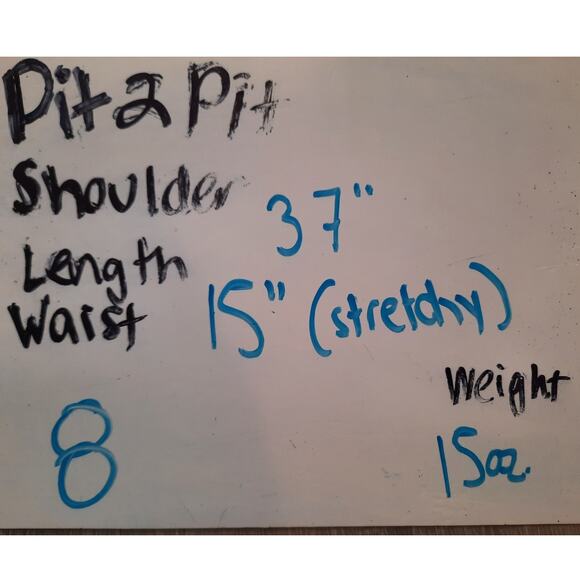 Pit 2 Pit
Shoulder
Length 37"
Waist 15" (stretchy)
Weight
8 15oz.